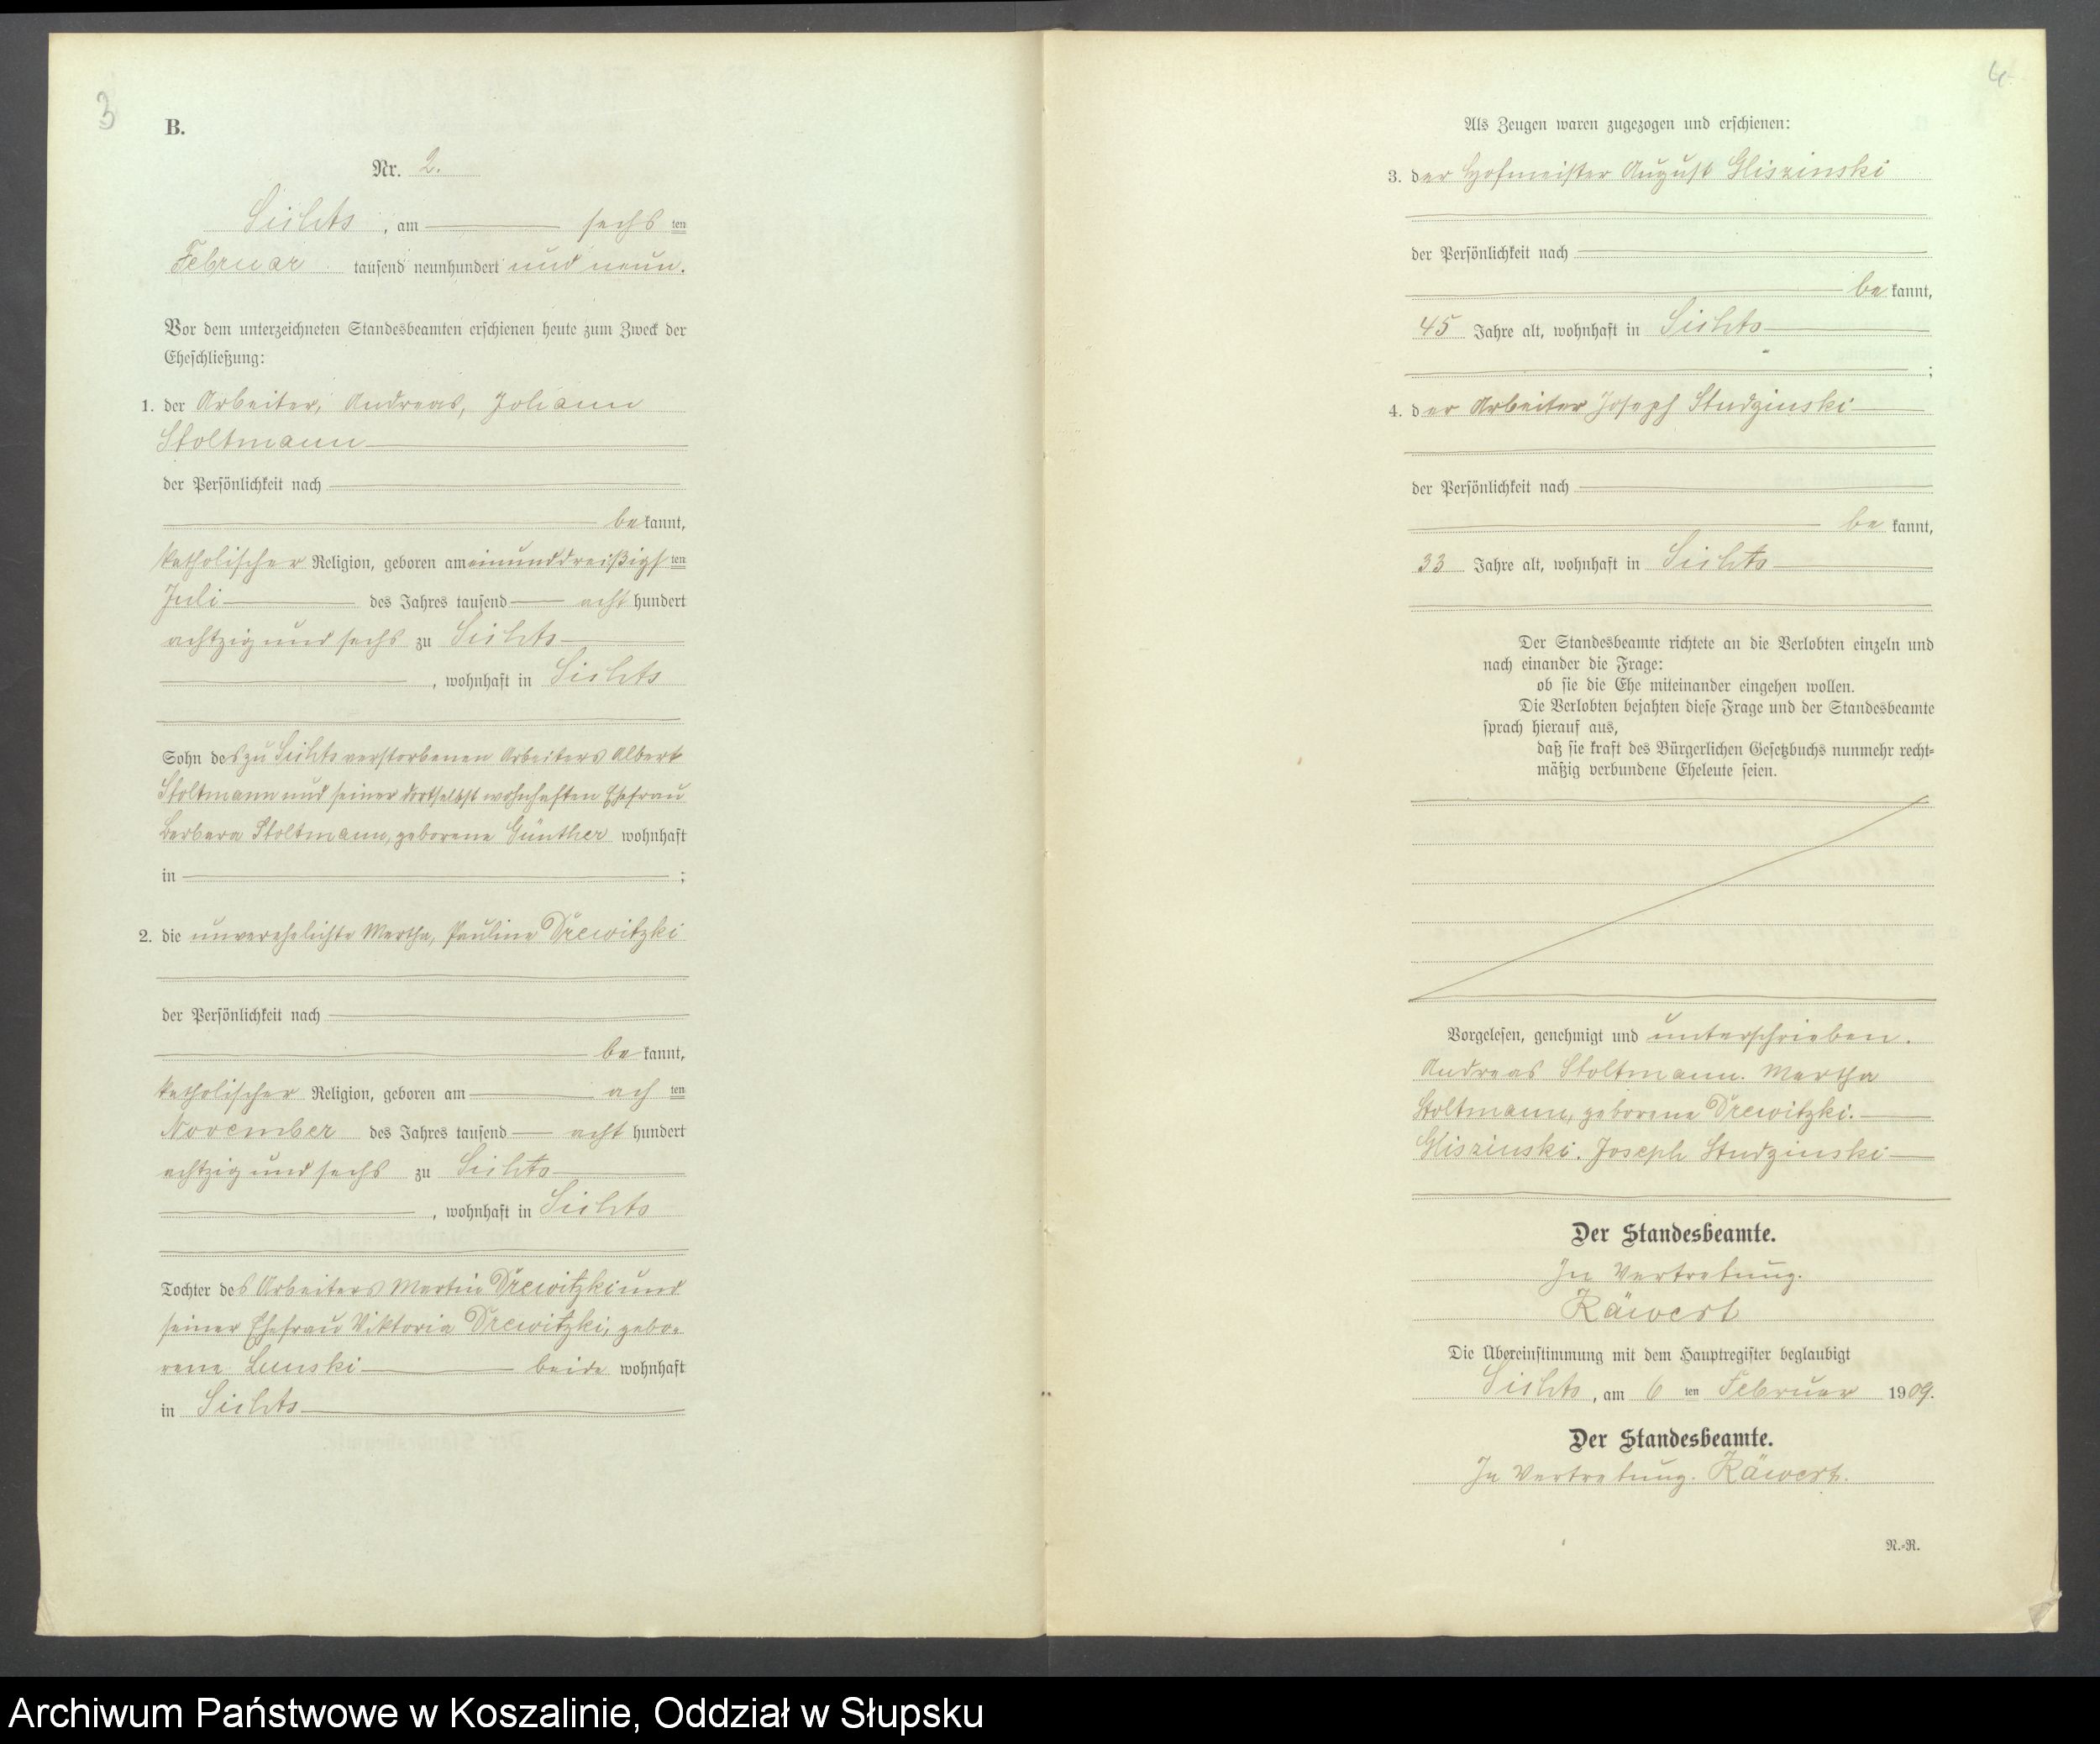 3
B.
Nr. 2.
Sichts, am sechs ten
Februar tausend neunhundert und neun.
Vor dem unterzeichneten Standesbeamten erschienen heute zum Zweck der
Eheschließung:
1. der Arbeiter, Andreas, Johann
Stoltmann
der Persönlichkeit nach
be kannt,
katholischer Religion, geboren am einunddreißigs ten
Juli des Jahres tausend acht hundert
achtzig und sechs zu Sichts
, wohnhaft in Sichts
Sohn des zu Sichts verstorbenen Arbeiters Albert
Stoltmann und seiner dortselbst wohnhaften Ehefrau
Barbara Stoltmann, geborene Günther wohnhaft
in ;
2. die unverehelichte Martha, Pauline Drewitzki
der Persönlichkeit nach
be kannt,
katholischer Religion, geboren am ach ten
November des Jahres tausend acht hundert
achtzig und sechs zu Sichts
, wohnhaft in Sichts
Tochter des Arbeiters Martin Drewitzki und
seiner Ehefrau Viktoria Drewitzki, gebo-
rene beide wohnhaft
in Sichts
4
Als Zeugen waren zugezogen und erschienen:
3. der Hofmeister August Gliszinski
der Persönlichkeit nach
be kannt,
45 Jahre alt, wohnhaft in Sichts
;
4. der Arbeiter Joseph Studzinski
der Persönlichkeit nach
be kannt,
33 Jahre alt, wohnhaft in Sichts
Der Standesbeamte richtete an die Verlobten einzeln und
nach einander die Frage:
ob sie die Ehe miteinander eingehen wollen.
Die Verlobten bejahten diese Frage und der Standesbeamte
sprach hierauf aus,
daß sie kraft des Bürgerlichen Gesetzbuchs nunmehr recht-
mäßig verbundene Eheleute seien.
Vorgelesen, genehmigt und unterschrieben.
Andreas Stoltmann. Martha
Stoltmann, geborene Drewitzki.
Gliszinski. Joseph Studzinski
Der Standesbeamte.
In Vertretung.
Räwert
Die Übereinstimmung mit dem Hauptregister beglaubigt
Sichts, am 6 ten Februar 1909.
Der Standesbeamte.
In Vertretung. Räwert.
N.-R.
Archiwum Państwowe w Koszalinie, Oddział w Słupsku